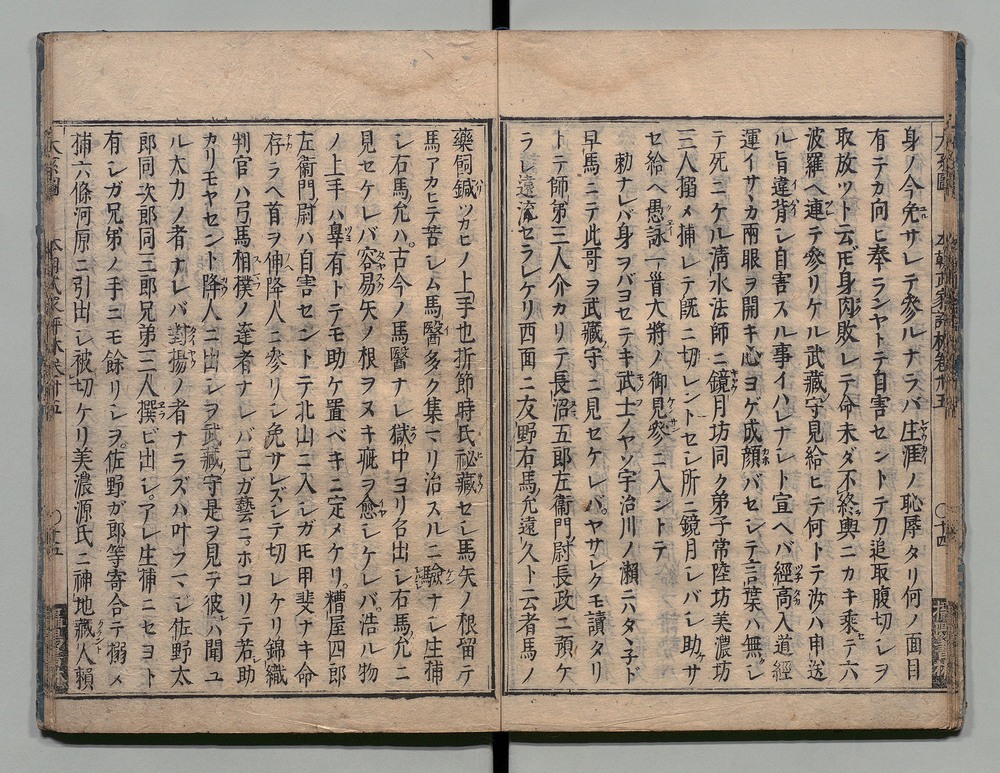 身ノ今免サレテ參ルナラバ生涯ノ恥辱タリ何ノ面目
有テカ向ヒ奉ランヤトテ自害セントテ刀追取腹切シヲ
取放ツト云ドモ身肉敗レテ命未ダ不終輿ニカキ乘テ六
波羅ヘ連テ參リケル武藏守見給ヒテ何トテ汝ハ申送
ル旨違背シ自害スル事イハレナシト宣ヘバ經高入道經
運イサヽカ兩眼ヲ開キ心ヨゲ成顔バセシテ言葉ハ無シ
テ死ニケル淸水法師ニ鏡月坊同ク弟子常陸坊美濃坊
三人搦メ捕レテ既ニ切レントセシ所ニ鏡月シバシ助サ
セ給ヘ愚詠一首大將ノ御見參ニ入ントテ
勅ナレバ身ヲバヨセテキ武士ノヤソ宇治川ノ瀬ニハタヽネド
早馬ニテ此哥ヲ武藏守ニ見セケレバヤサシクモ讀タリ
トテ師弟三人介カリテ長沼五郎左衞門尉長政ニ預ケ
ラレ遠流セラレケリ西面ニ友野右馬允遠久ト云者馬ノ
藥飼鍼ツカヒノ上手也折節時氏祕藏セシ馬矢ノ根留テ
馬アカヒテ苦シム馬醫多ク集マリ治スルニ驗ナシ生捕
シ右馬允ハ古今ノ馬醫ナレ獄中ヨリ召出シ右馬允ニ
見セケレバ容易矢ノ根ヲヌキ疵ヲ愈シケレバ浩ル物
ノ上手ハ辜有トテモ助ケ置ベキニ定メケリ糟屋四郎
左衞門尉ハ自害セントテ北山ニ入シガドモ甲斐ナキ命
存ラヘ首ヲ伸降人ニ參リシ免サレズシテ切レケリ錦織
判官ハ弓馬相樸ノ達者ナレバ己ガ藝ニホコリテ若助
カリモヤセント降人ニ出シヲ武藏守是ヲ見テ彼ハ聞ユ
ル大力ノ者ナレバ對揚ノ者ナラズハ叶フマシ佐野太
郎同次郎同三郎兄弟三人撰ビ出シアレ生捕ニセヨト
有シガ兄弟ノ手ニモ餘リシヲ佐野ガ郎等寄合テ搦メ
捕六條河原ニ引出シ被切ケリ美濃源氏ニ神地藏人頼